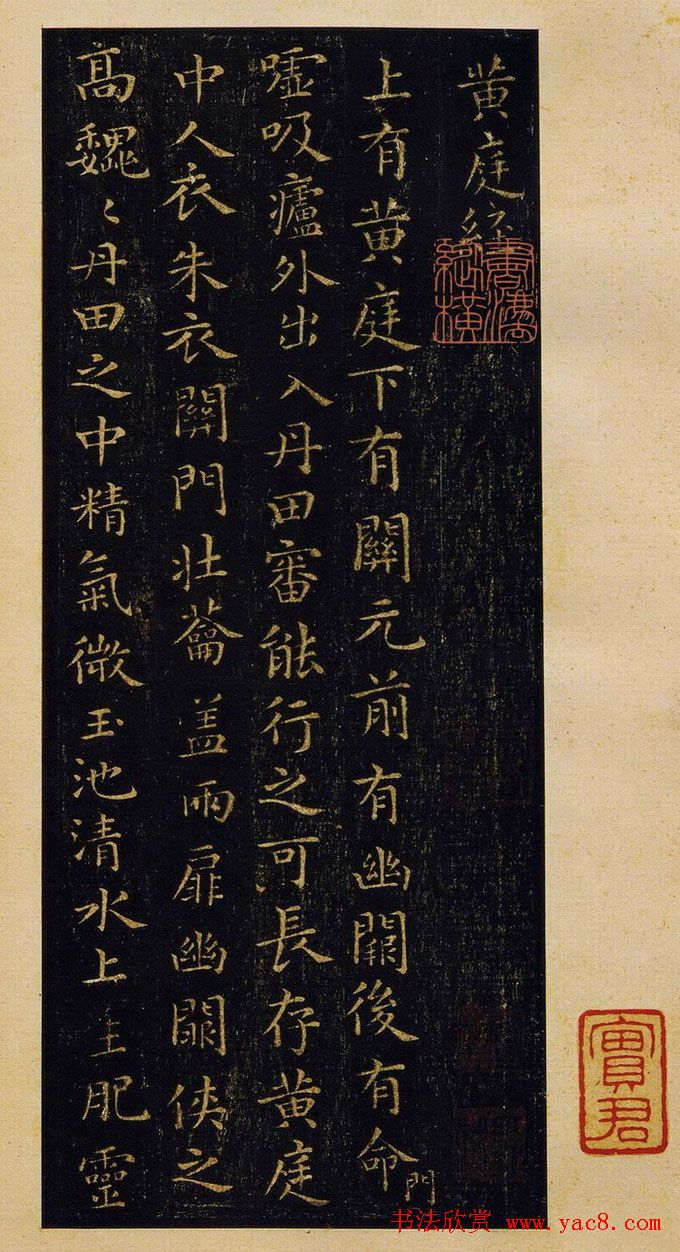 黄庭經
上有黄庭下有關元前有幽闕後有命門
嘘吸廬外出入丹田審能行之可長存黄庭
中人衣朱衣關門壯蘥盖兩扉幽闕侠之
高巍〻丹田之中精氣微玉池清水上生肥靈
實君
书法欣赏 www.yac8.com